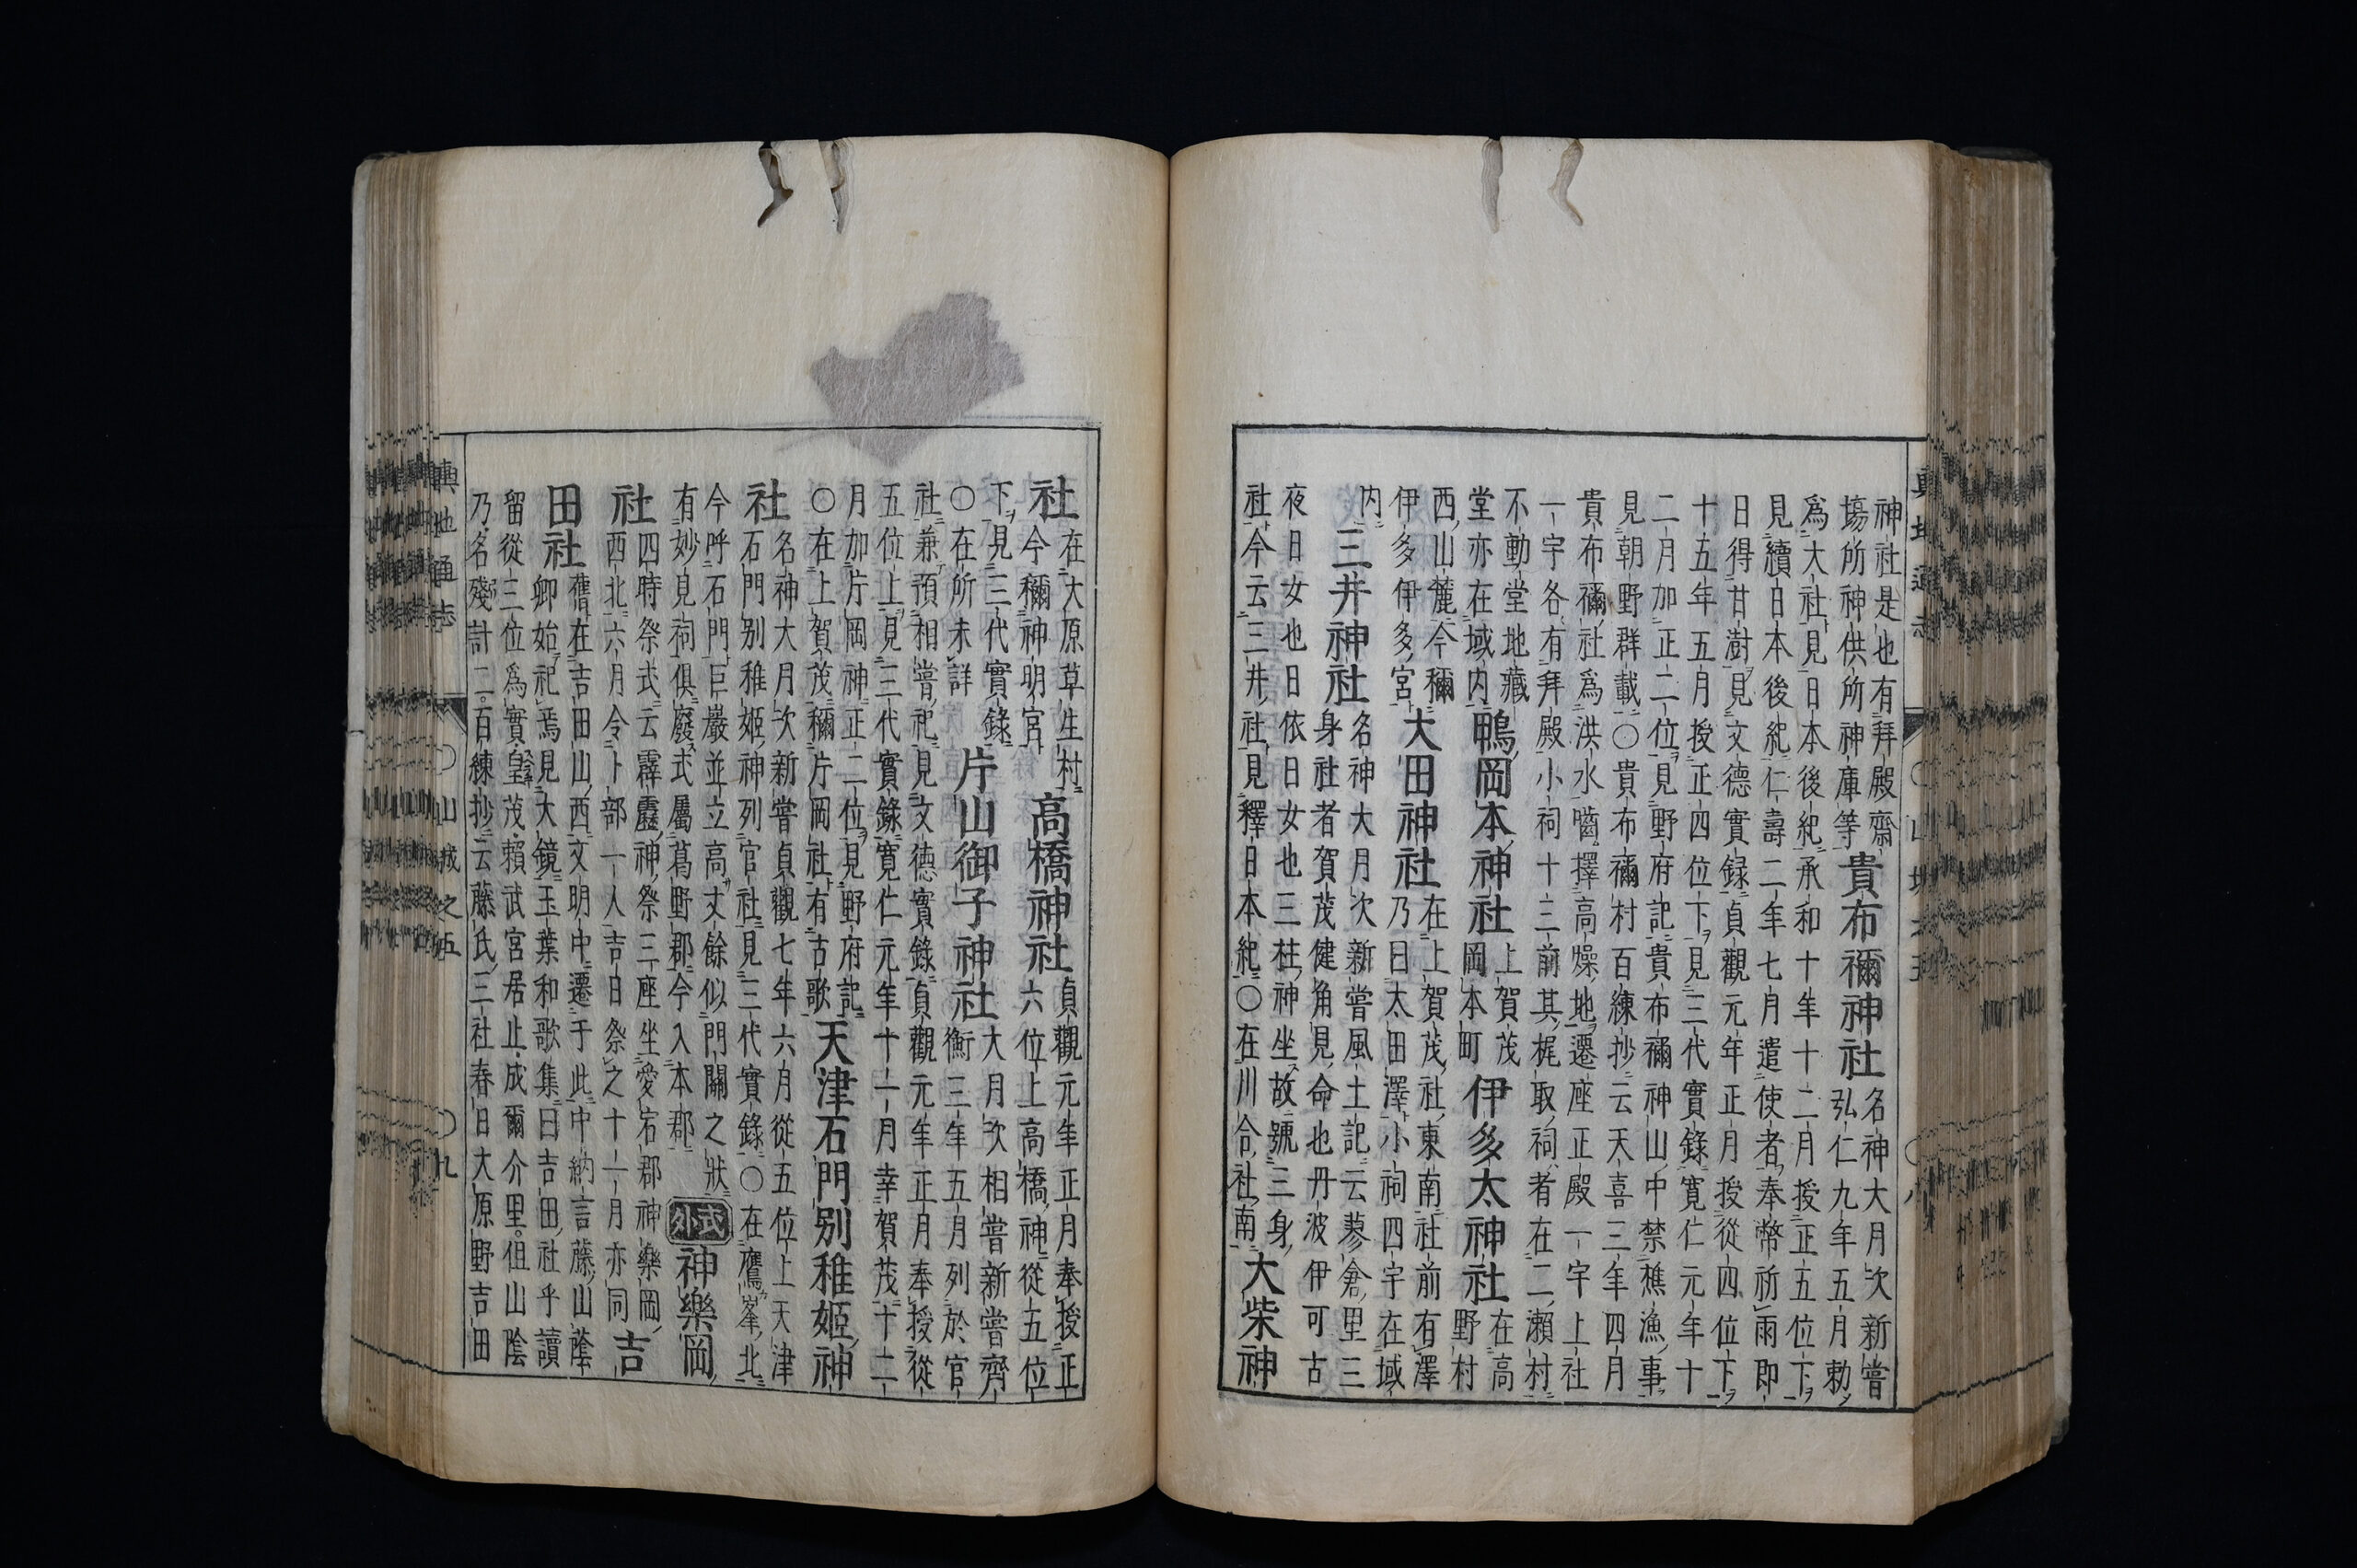 輿地通志 ○山城之五 ○八
神社是也有拜殿齋
塲所神供所神庫等
貴布禰神社
名神大月次新嘗
弘仁九年五月勅
爲大社見日本後紀承和十年十二月授正五位下
見續日本後紀仁壽二年七月遣使者奉幣祈雨即
日得甘澍見文德實録貞觀元年正月授從四位下
十五年五月授正四位下見三代實錄寬仁元年十
二月加正二位見野府記貴布禰神山中禁樵漁事
見朝野群載○貴布禰村百練抄云天喜三年四月
貴布禰社爲洪水嚙擇高燥地遷座正殿一宇上社
一宇各有拜殿小祠十三前其梶取祠者在二瀬村
不動堂地藏
堂亦在域内
鴨岡本神社
上賀茂
岡本町
伊多太神社
在高
野村
西山麓今稱
伊多伊多宮
大田神社
在上賀茂社東南社前有澤
乃曰太田澤小祠四宇在域
内
三井神社
名神大月次新嘗風土記云蓼倉里三
身社者賀茂健角見命也丹波伊可古
夜日女也日依日女也三柱神坐故號三身
社今云三井社見釋日本紀○在川合社南
大柴神
社
在大原草生村
今稱神明宮
高橋神社
貞觀元年正月奉授正
六位上高橋神從五位
下見三代實錄
○在所未詳
片山御子神社
大月次相嘗新嘗齊
衡三年五月列於官
社兼預相嘗祀見文德實錄貞觀元年正月奉授從
五位上見三代實錄寬仁元年十一月幸賀茂十二
月加片岡神正二位見野府記
○在上賀茂稱片岡社有古歌
天津石門別稚姬神
社
名神大月次新嘗貞觀七年六月從五位上天津
石門別稚姬神列官社見三代實錄○在鷹峯北
今呼石門巨巖並立高丈餘似門關之狀
有妙見祠俱廢式屬葛野郡今入本郡
式外
神樂岡
社
四時祭式云霹靂神祭三座坐愛宕郡神樂岡
西北六月令卜部一人吉日祭之十一月亦同
吉
田社
舊在吉田山西文明中遷于此中納言藤山蔭
卿始祀焉見大鏡玉葉和歌集曰吉田社乎讀
留從三位爲實皇茂賴武宮居止成爾介里但山陰
乃名殘計二百練抄云藤氏三社春日大原野吉田
輿地通志 ○山城之五 ○九